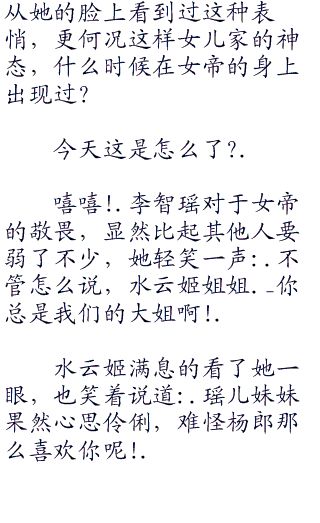 从她的脸上看到过这种表
情，更何况这样女儿家的神
态，什么时候在女帝的身上
出现过？
今天这是怎么了？.
嘻嘻！.李智瑶对于女帝
的敬畏，显然比起其他人要
弱了不少，她轻笑一声：.不
管怎么说，水云姬姐姐._你
总是我们的大姐啊！.
水云姬满息的看了她一
眼，也笑着说道：.瑶儿妹妹
果然心思伶俐，难怪杨郎那
么喜欢你呢！.